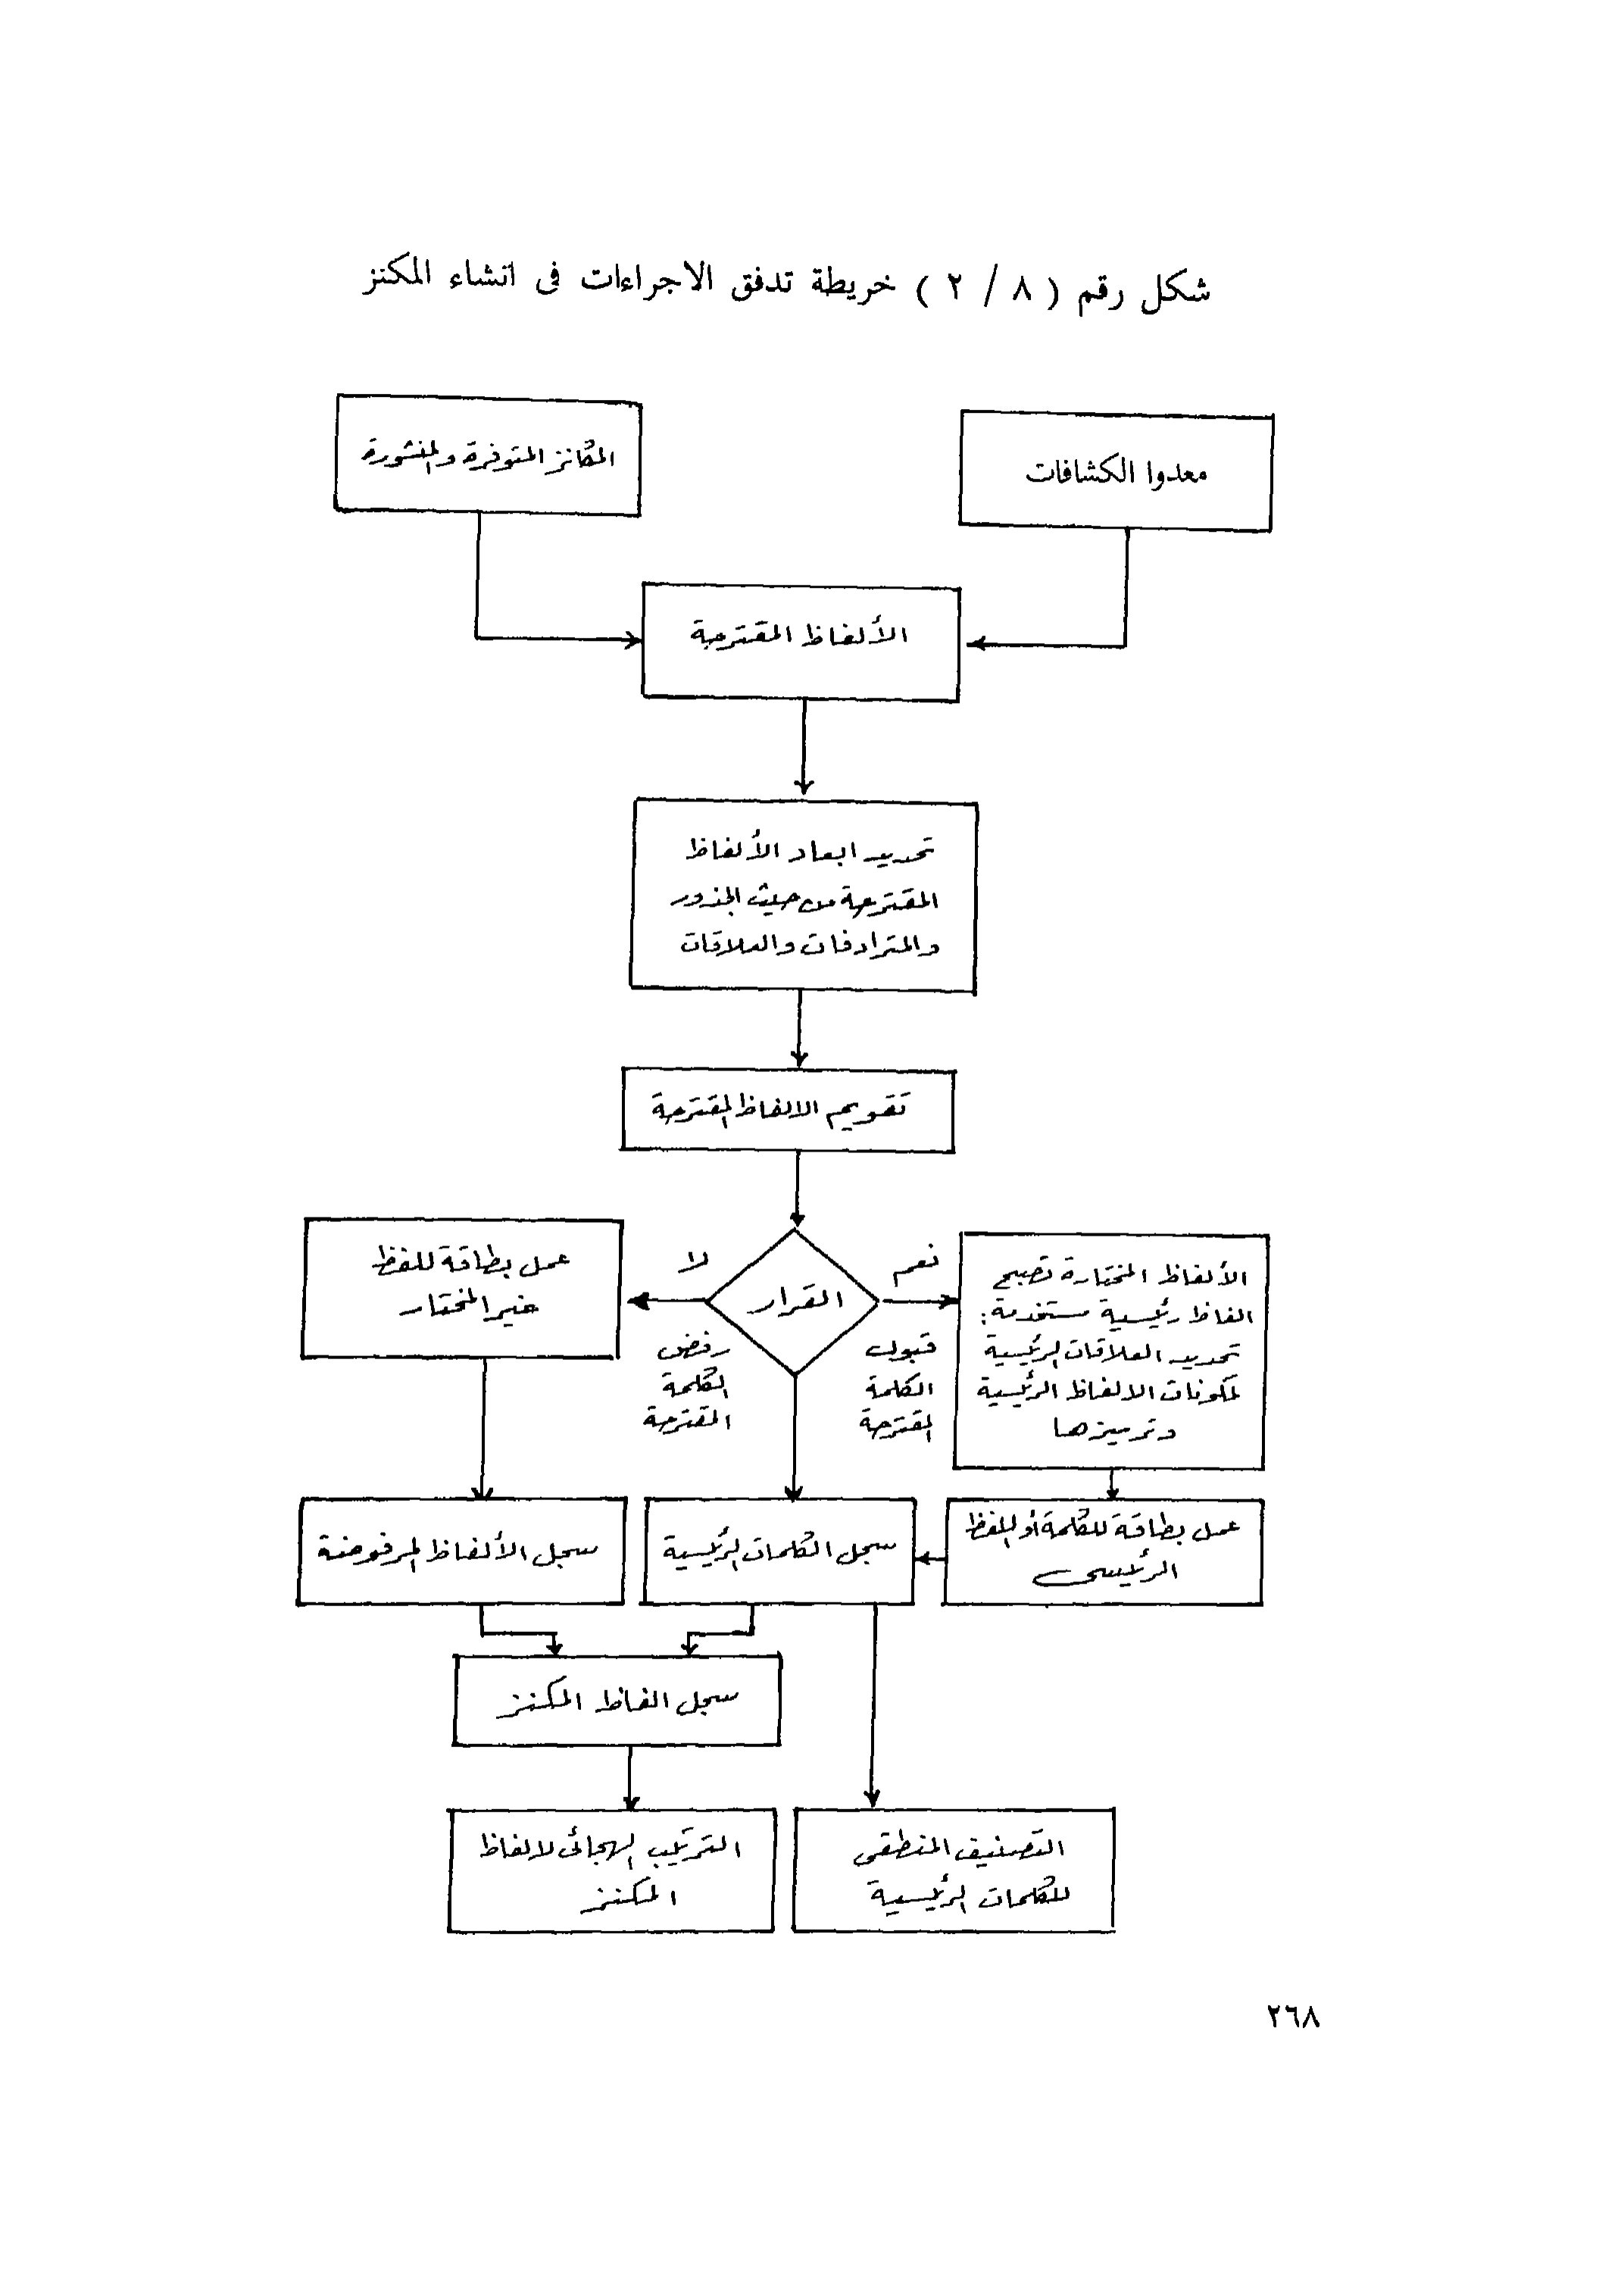 شكل رقم ( ٨ / ٢ ) خريطة تدفق الاجراءات فى انشاء المكنز
معدوا الكشافات
المكانز المتوفرة والمنشورة
الألفاظ المقترحة
تحديد ابعاد الألفاظ
المقترحة من حيث الجذور
والمترادفات والعلاقات
تقويم الالفاظ المقترحة
القرار
نعم
قبول
الكلمة
المقترحة
لا
رفض
الكلمة
المقترحة
الألفاظ المختارة تصبح
الفاظ رئيسية مستخدمة:
تحديد العلاقات الرئيسية
لمكونات الالفاظ الرئيسية
وترميزها
عمل بطاقة للفظ
غير المختار
عمل بطاقة للكلمة أو اللفظ
الرئيسى
سجل الكلمات الرئيسية
سجل الألفاظ المرفوضة
سجل الفاظ المكنز
التصنيف المنطقى
للكلمات الرئيسية
الترتيب الهجائى لالفاظ
المكنز
٢٦٨